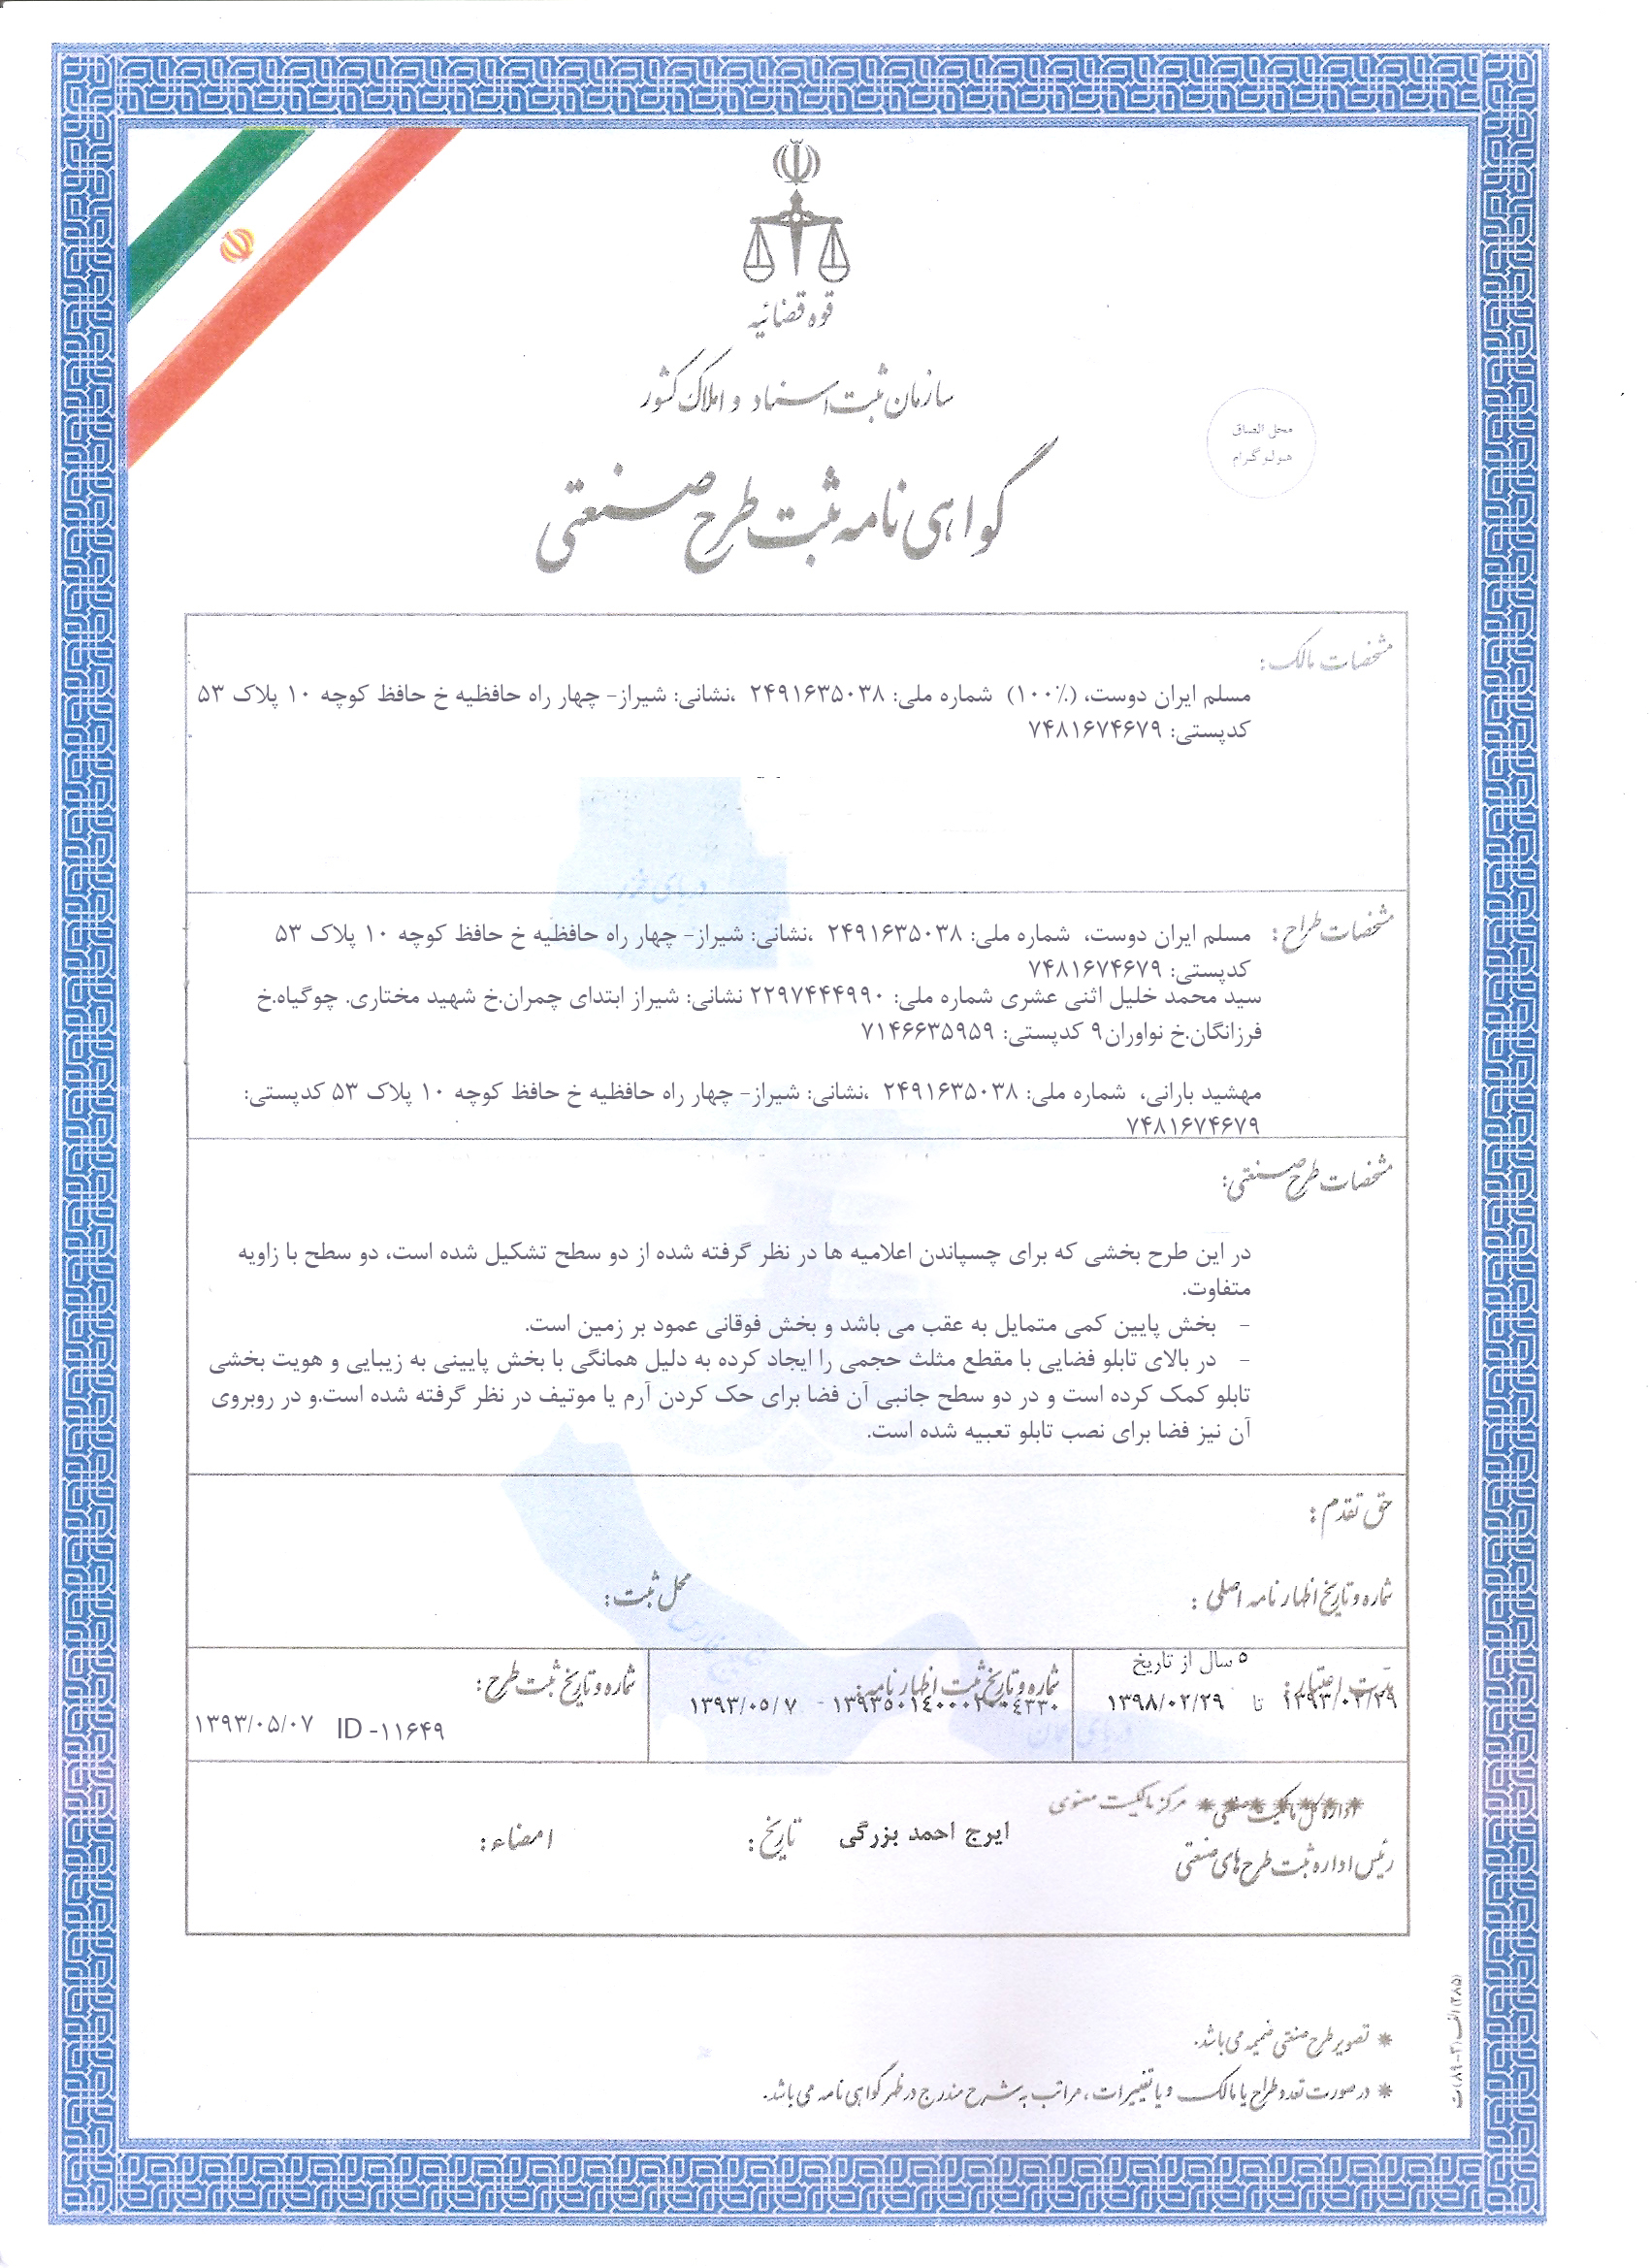 قوه قضائیه
سازمان ثبت اسناد و املاک کشور
محل الصاق
هولوگرام
گواهی نامه ثبت طرح صنعتی
مشخصات مالک:
مسلم ایران دوست، (۱۰۰٪) شماره ملی: ۲۴۹۱۶۳۵۰۳۸ ،نشانی: شیراز- چهار راه حافظیه خ حافظ کوچه ۱۰ پلاک ۵۳
کدپستی: ۷۴۸۱۶۷۴۶۷۹
دریای خزر
مشخصات طراح:
مسلم ایران دوست، شماره ملی: ۲۴۹۱۶۳۵۰۳۸ ،نشانی: شیراز- چهار راه حافظیه خ حافظ کوچه ۱۰ پلاک ۵۳
کدپستی: ۷۴۸۱۶۷۴۶۷۹
سید محمد خلیل اثنی عشری شماره ملی: ۲۲۹۷۴۴۴۹۹۰ نشانی: شیراز ابتدای چمران.خ شهید مختاری. چوگیاه.خ
فرزانگان.خ نواوران۹ کدپستی: ۷۱۴۶۶۳۵۹۵۹
مهشید بارانی، شماره ملی: ۲۴۹۱۶۳۵۰۳۸ ،نشانی: شیراز- چهار راه حافظیه خ حافظ کوچه ۱۰ پلاک ۵۳ کدپستی:
۷۴۸۱۶۷۴۶۷۹
مشخصات طرح صنعتی:
در این طرح بخشی که برای چسپاندن اعلامیه ها در نظر گرفته شده از دو سطح تشکیل شده است، دو سطح با زاویه
متفاوت.
- بخش پایین کمی متمایل به عقب می باشد و بخش فوقانی عمود بر زمین است.
- در بالای تابلو فضایی با مقطع مثلث حجمی را ایجاد کرده به دلیل همانگی با بخش پایینی به زیبایی و هویت بخشی
تابلو کمک کرده است و در دو سطح جانبی آن فضا برای حک کردن آرم یا موتیف در نظر گرفته شده است.و در روبروی
آن نیز فضا برای نصب تابلو تعبیه شده است.
حق تقدم:
شماره و تاریخ اظهار نامه اصلی:
محل ثبت:
خلیج فارس
مدت اعتبار:
۵ سال از تاریخ
۱۳۹۳/۰۲/۲۹ تا ۱۳۹۸/۰۲/۲۹
شماره و تاریخ ثبت اظهار نامه:
۱۳۹۳۵۰۱۴۰۰۰۲۰۰٤۳۳۰ - ۱۳۹۳/۰۵/۷
شماره و تاریخ ثبت طرح:
ID -۱۱۶۴۹ ۱۳۹۳/۰۵/۰۷
دریای عمان
اداره کل مالکیت صنعتی مرکز مالکیت معنوی
رئیس اداره ثبت طرح های صنعتی
ایرج احمد بزرگی
تاریخ:
امضاء:
* تصویر طرح صنعتی ضمیمه می باشد.
* در صورت تعدد طراح یا مالک و یا تغییرات، مراتب به شرح مندرج در ظهر گواهی نامه می باشد.